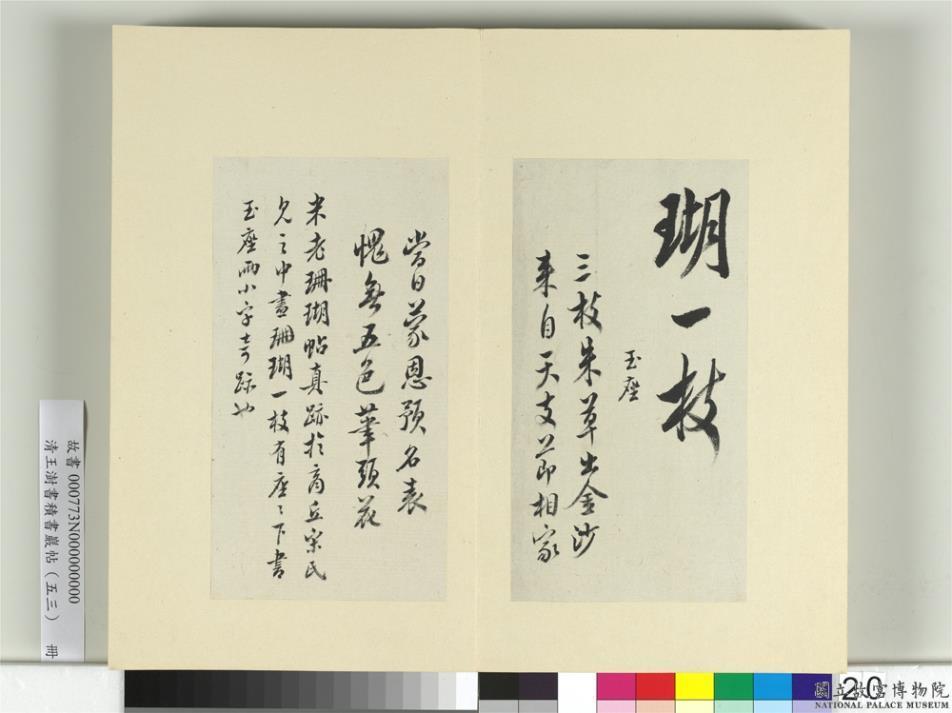 瑚一枝
玉座
三枝朱草出金沙
来自天支節相家
當日蒙恩預名表
愧無五色筆頭花
米老珊瑚帖真跡於商丘宋氏
見之中畫珊瑚一枝有座座下書
玉座兩小字奇跡也
故書 000773N000000000
清王澍書積書巖帖(五三) 冊
20
國立故宮博物院
NATIONAL PALACE MUSEUM